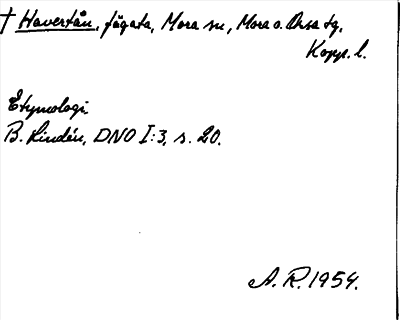 † Havertån, fågata, Mora sn, Mora o. Orsa tg,
Kopp. l.
Etymologi
B. Lindén, DNO I:3, s. 20.
A. R. 1954.